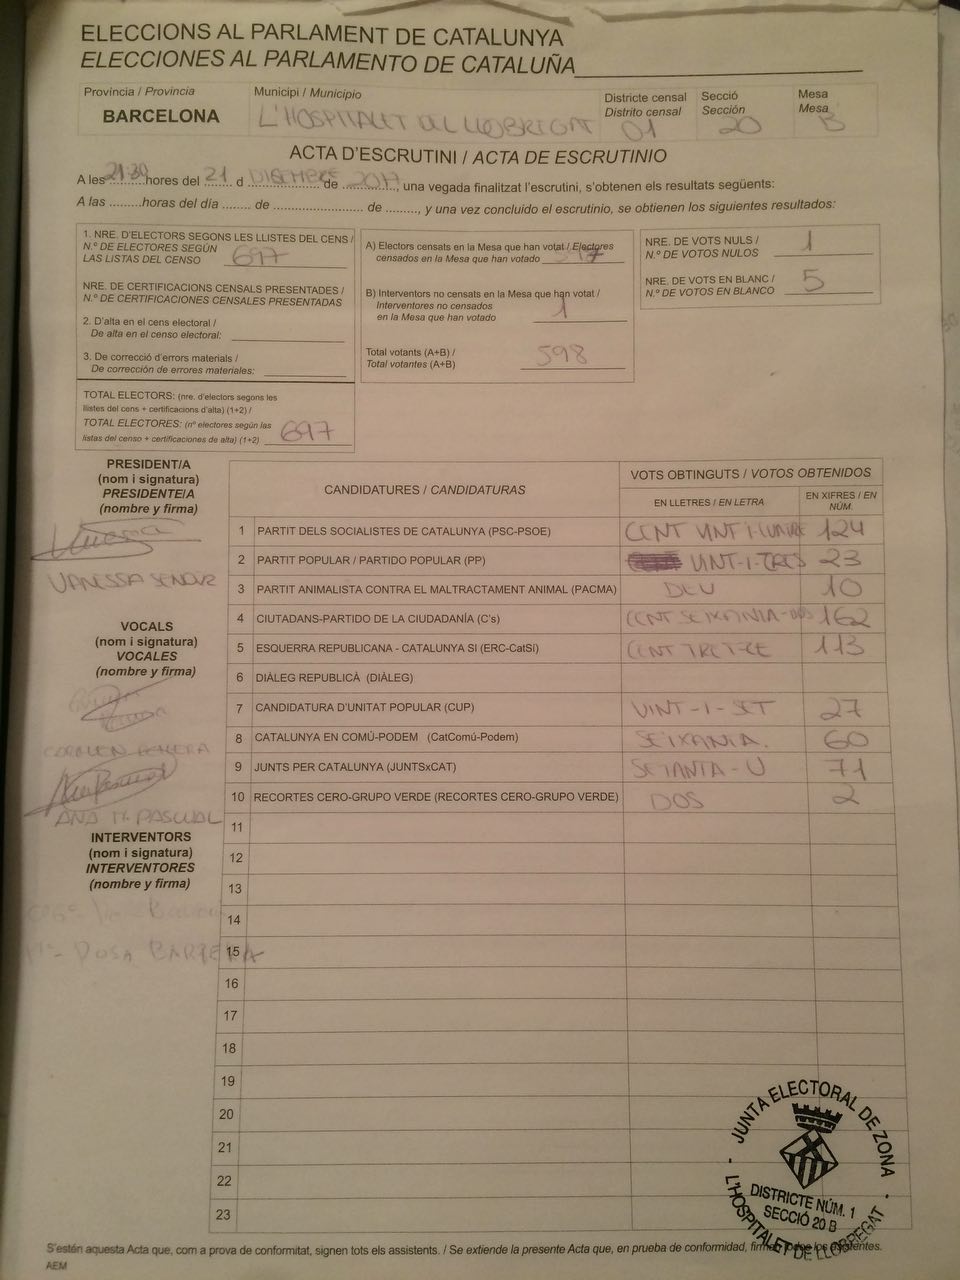 ELECCIONS AL PARLAMENT DE CATALUNYA
ELECCIONES AL PARLAMENTO DE CATALUÑA
Província / Provincia
BARCELONA
Municipi / Municipio
L'HOSPITALET DE LLOBREGAT
Districte censal
Distrito censal
01
Secció
Sección
20
Mesa
Mesa
B
ACTA D'ESCRUTINI / ACTA DE ESCRUTINIO
A les 21:30 hores del 21 d DISEMBRE de 2017, una vegada finalitzat l'escrutini, s'obtenen els resultats següents:
A las .........horas del día ........ de ......................... de ........., y una vez concluido el escrutinio, se obtienen los siguientes resultados:
1. NRE. D'ELECTORS SEGONS LES LLISTES DEL CENS /
N.º DE ELECTORES SEGÚN
LAS LISTAS DEL CENSO 697
NRE. DE CERTIFICACIONS CENSALS PRESENTADES /
N.º DE CERTIFICACIONES CENSALES PRESENTADAS
2. D'alta en el cens electoral /
De alta en el censo electoral:
3. De correcció d'errors materials /
De corrección de errores materiales:
TOTAL ELECTORS: (nre. d'electors segons les
llistes del cens + certificacions d'alta) (1+2) /
TOTAL ELECTORES: (nº electores según las
listas del censo + certificaciones de alta) (1+2) 697
A) Electors censats en la Mesa que han votat / Electores
censados en la Mesa que han votado 597
B) Interventors no censats en la Mesa que han votat /
Interventores no censados
en la Mesa que han votado 1
Total votants (A+B) /
Total votantes (A+B) 598
NRE. DE VOTS NULS /
N.º DE VOTOS NULOS 1
NRE. DE VOTS EN BLANC /
N.º DE VOTOS EN BLANCO 5
PRESIDENT/A
(nom i signatura)
PRESIDENTE/A
(nombre y firma)
VANESSA
VOCALS
(nom i signatura)
VOCALES
(nombre y firma)
ANA Mª PASCUAL
INTERVENTORS
(nom i signatura)
INTERVENTORES
(nombre y firma)
Mª ROSA BARRERA
CANDIDATURES / CANDIDATURAS
VOTS OBTINGUTS / VOTOS OBTENIDOS
EN LLETRES / EN LETRA
EN XIFRES / EN NÚM.
1 PARTIT DELS SOCIALISTES DE CATALUNYA (PSC-PSOE) CENT VINT-I-QUATRE 124
2 PARTIT POPULAR / PARTIDO POPULAR (PP) VINT-I-TRES 23
3 PARTIT ANIMALISTA CONTRA EL MALTRACTAMENT ANIMAL (PACMA) DEU 10
4 CIUTADANS-PARTIDO DE LA CIUDADANÍA (C's) CENT SEIXANTA-DOS 162
5 ESQUERRA REPUBLICANA - CATALUNYA SI (ERC-CatSI) CENT TRETZE 113
6 DIÀLEG REPUBLICÀ (DIÀLEG)
7 CANDIDATURA D'UNITAT POPULAR (CUP) VINT-I-SET 27
8 CATALUNYA EN COMÚ-PODEM (CatComú-Podem) SEIXANTA. 60
9 JUNTS PER CATALUNYA (JUNTSxCAT) SETANTA-U 71
10 RECORTES CERO-GRUPO VERDE (RECORTES CERO-GRUPO VERDE) DOS 2
11
12
13
14
15
16
17
18
19
20
21
22
23
JUNTA ELECTORAL DE ZONA
DISTRICTE NÚM. 1
SECCIÓ 20 B
L'HOSPITALET DE LLOBREGAT
S'estén aquesta Acta que, com a prova de conformitat, signen tots els assistents. / Se extiende la presente Acta que, en prueba de conformidad, firman todos los asistentes.
AEM